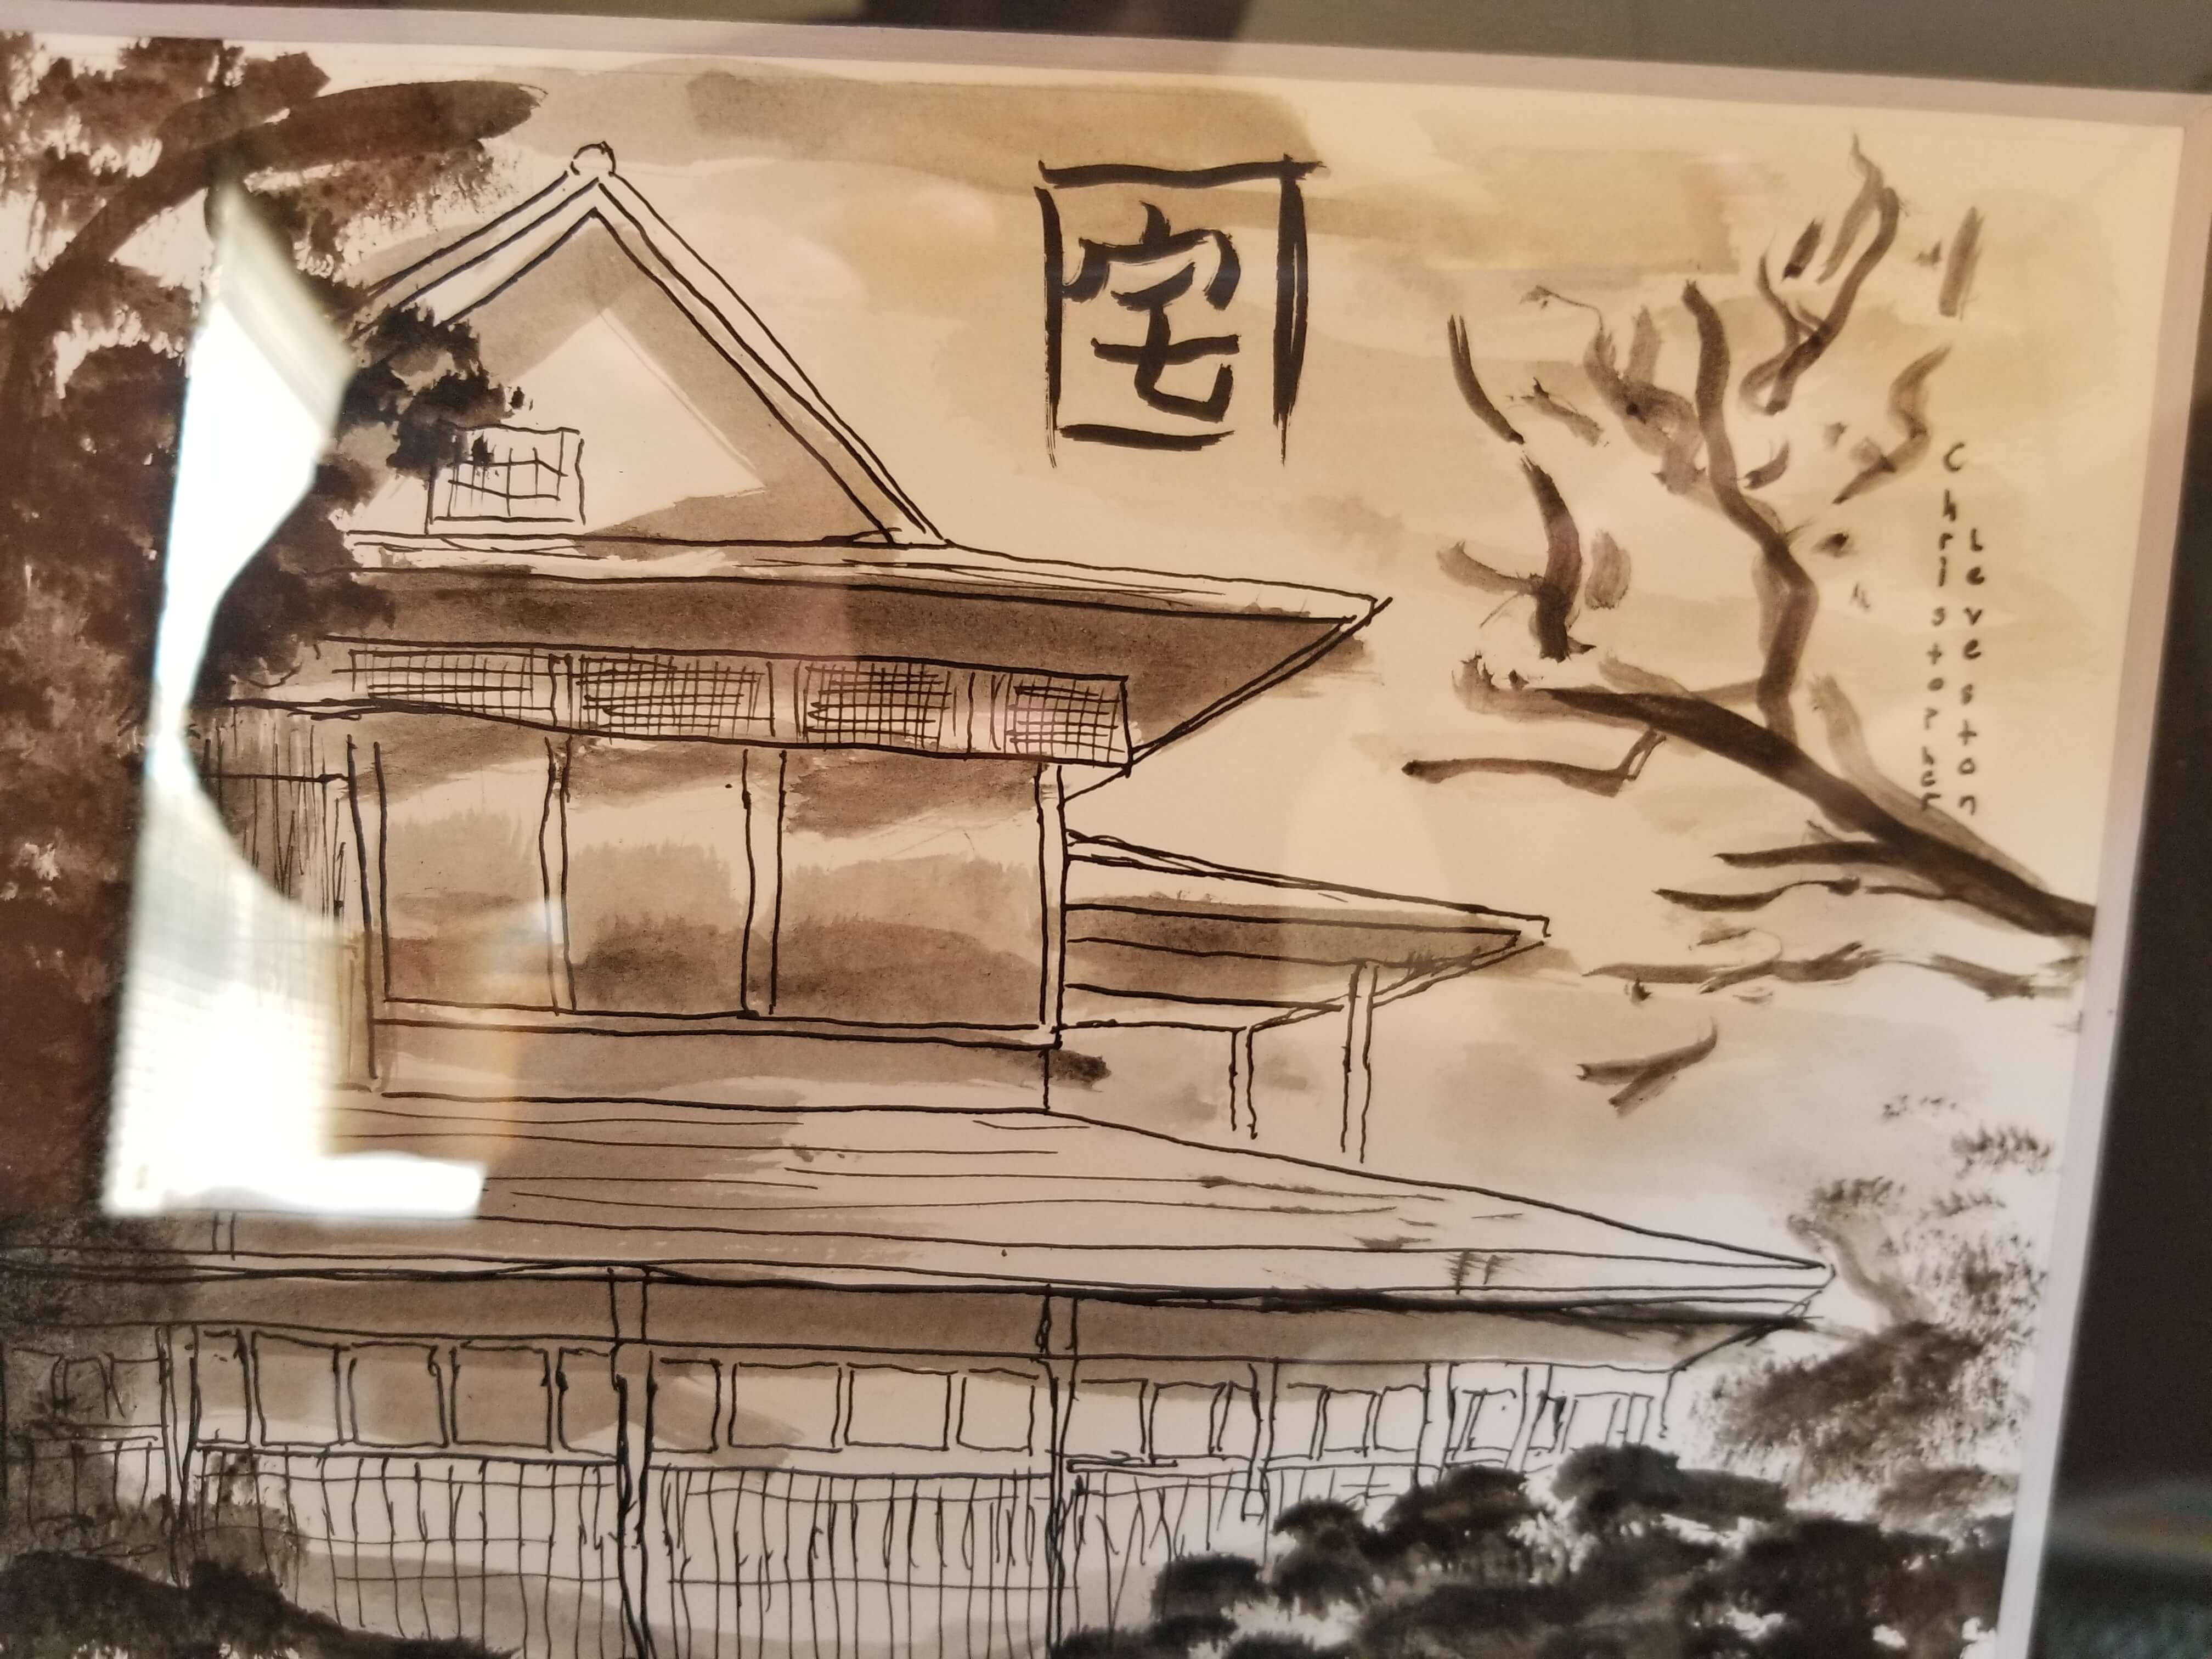 宅
Christopher
Leveston